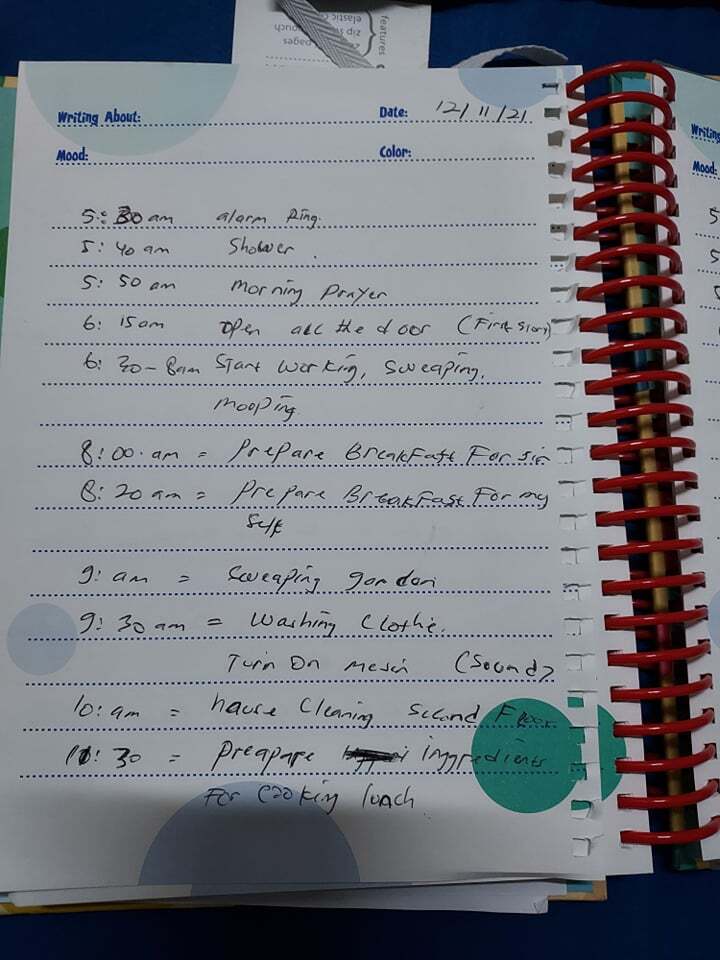 features
elastic
zip
pages
Writing About:
Date: 12/11/21
Mood:
Color:
5:30 am alarm Ring.
5:40 am Shower.
5:50 am morning Prayer
6:15 am open all the door (First story)
6:30 - 8am Start working, sweaping,
mooping
8:00.am = Prepare Breakfast For sir
8:20 am = Prepare Breakfast For my
self
9: am = Sweaping gardan
9:30 am = Washing Clothe.
Turn On mesin (Sound)
10: am = hause Cleaning second Floor
11:30 = Preapare inggredients
For Cooking lunch
Writing
Mood:
5
5